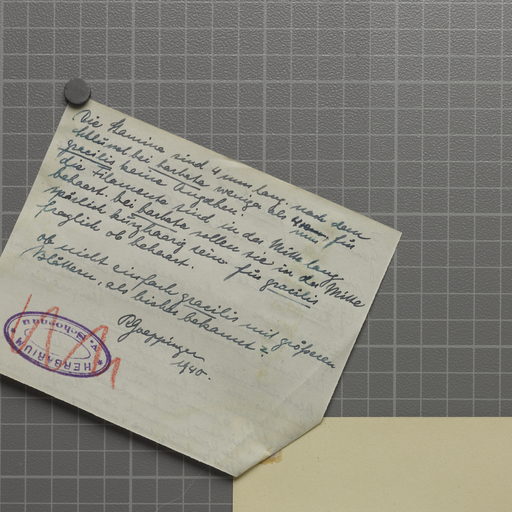 Die Stamina sind 4 mm lang, nach dem
Schlüssel bei barbata weniger als 4 mm, für
gracilis keine Angaben!
die Filamente sind in der Mitte lang
behaart. bei barbata sollen sie in der Mitte
spärlich kurzhaarig sein für gracilis
fraglich ob behaart.
ob nicht einfach gracilis mit größeren
Blättern, als bisher bekannt?
Goeppinger
1940.
HERBARIUM
v. Schoenau